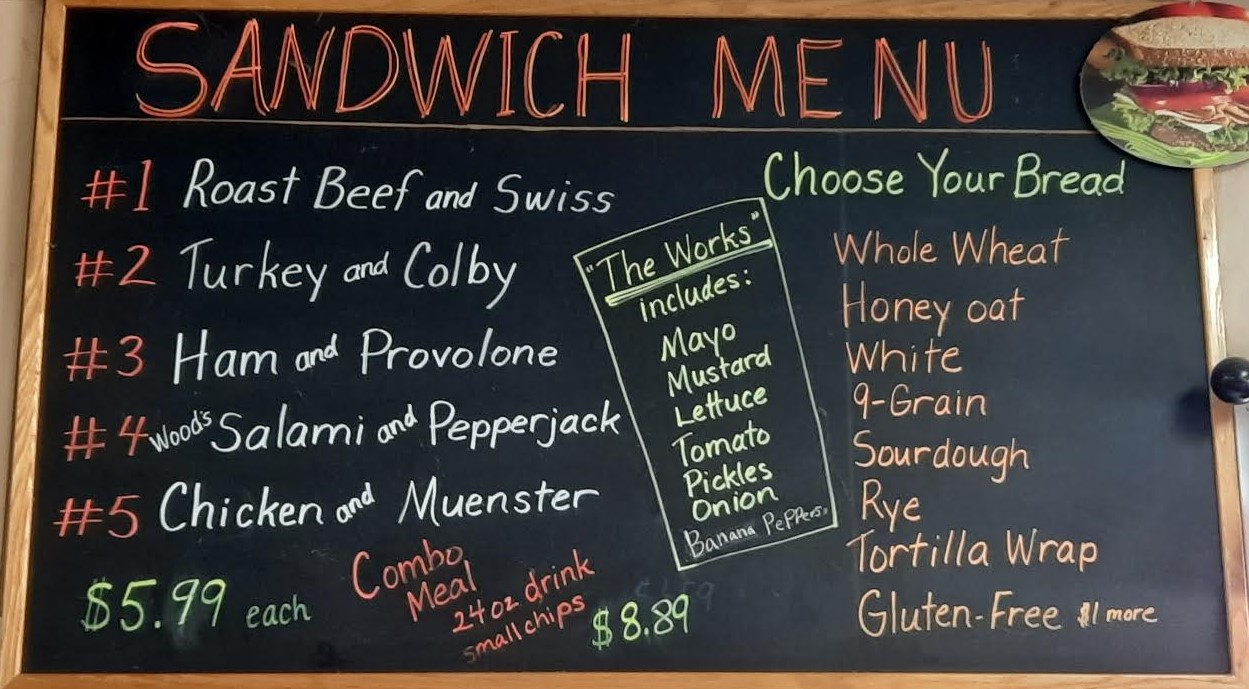 SANDWICH MENU
#1 Roast Beef and Swiss
#2 Turkey and Colby
#3 Ham and Provolone
#4 Wood's Salami and Pepperjack
#5 Chicken and Muenster
$5.99 each
Combo
Meal
24 oz drink
small chips
$8.89
"The Works"
includes:
Mayo
Mustard
Lettuce
Tomato
Pickles
Onion
Banana Peppers
Choose Your Bread
Whole Wheat
Honey oat
White
9-Grain
Sourdough
Rye
Tortilla Wrap
Gluten-Free $1 more